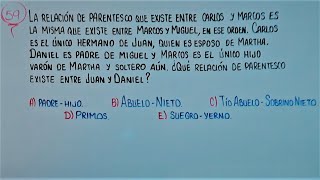 59
LA RELACIÓN DE PARENTESCO QUE EXISTE ENTRE CARLOS Y MARCOS ES
LA MISMA QUE EXISTE ENTRE MARCOS Y MIGUEL, EN ESE ORDEN. CARLOS
ES EL ÚNICO HERMANO DE JUAN, QUIEN ES ESPOSO DE MARTHA.
DANIEL ES PADRE DE MIGUEL Y MARCOS ES EL ÚNICO HIJO
VARÓN DE MARTHA Y SOLTERO AÚN. ¿QUÉ RELACIÓN DE PARENTESCO
EXISTE ENTRE JUAN Y DANIEL?
A) PADRE-HIJO. B) ABUELO-NIETO. C) TÍO ABUELO-SOBRINO NIETO
D) PRIMOS. E) SUEGRO-YERNO.